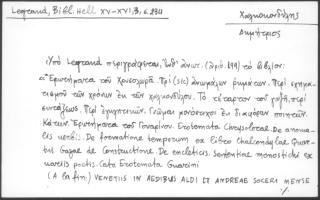 Legrand, Bibl. Hell XV-XVI, 3, σ. 234
Χαλκονδύλης
Δημήτριος
Ὑπὸ Legrand περιγράφεται, (ἀριθ. 299) τὸ βιβλίον:
"Ἐρωτήματα τοῦ Χρυσολωρᾶ. Πρὶ (sic) ἀνωμάλων ῥημάτων. Περὶ σχημα-
τισμοῦ τῶν χρόνων ἐκ τῶν χαλκονδύλου. Τὸ τέταρτον τοῦ γαζῆ, περὶ
συντάξεως. Περὶ ἐγκλιτικῶν. Γνῶμαι μονόστιχοι ἐκ διαφόρων ποιητῶν.
Κάτων. Ἐρωτήματα τοῦ Γουαρίνου. Erotemata Chrysolorae. De anoma-
lis verbis. De formatione temporum ex libro Chalcondylae. Quar-
tus Gazae de Constructione. De encleticis. Sententiae monostichi ex
variis poetis. Cato. Erotemata Guarini
(A la fin.) VENETIIS IN AEDIBUS ALDI ET ANDREAE SOCERI MENSE
%